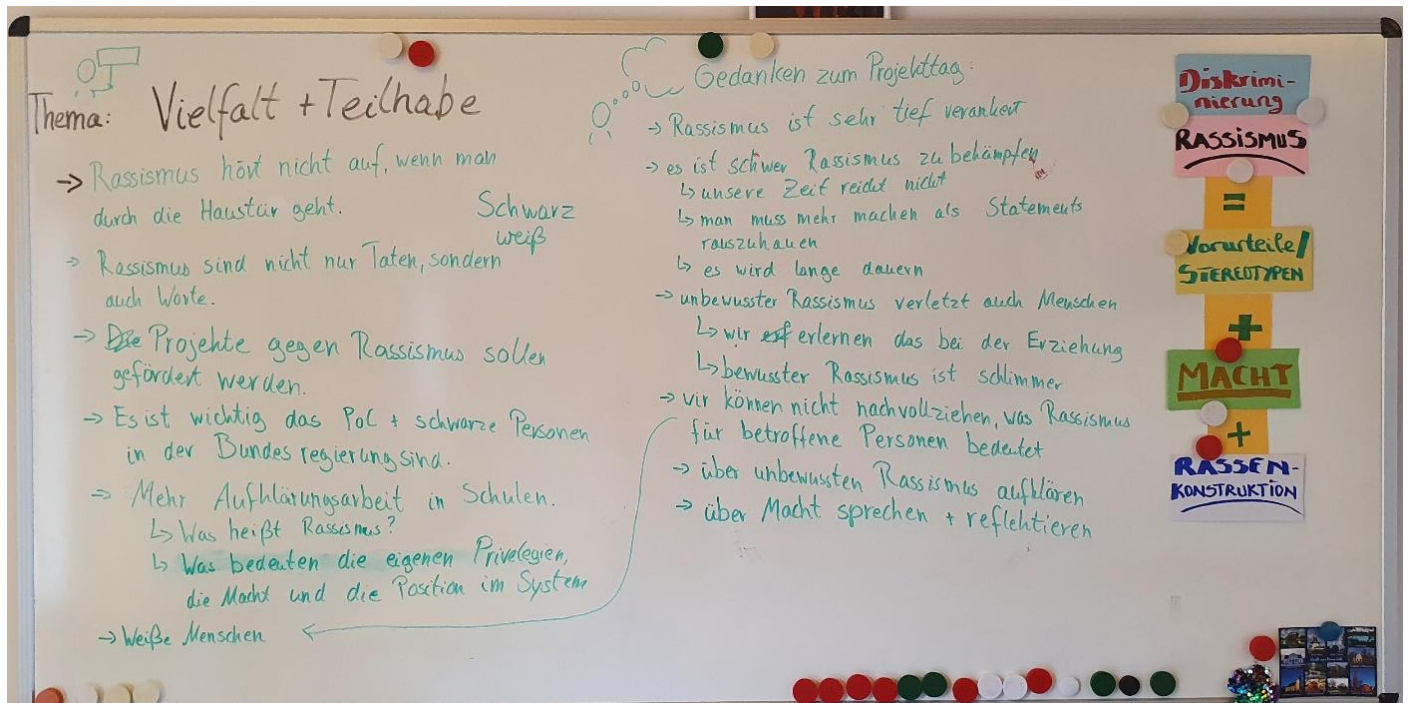 Thema: Vielfalt + Teilhabe
→ Rassismus hört nicht auf, wenn man
durch die Haustür geht.
Schwarz
weiß
→ Rassismus sind nicht nur Taten, sondern
auch Worte.
→ Projekte gegen Rassismus sollen
gefördert werden.
→ Es ist wichtig das PoC + schwarze Personen
in der Bundesregierung sind.
→ Mehr Aufklärungsarbeit in Schulen.
↳ Was heißt Rassismus?
↳ Was bedeuten die eigenen Privelegien,
die Macht und die Position im System
→ Weiße Menschen
Gedanken zum Projekttag:
→ Rassismus ist sehr tief verankert
→ es ist schwer Rassismus zu bekämpfen
↳ unsere Zeit reicht nicht
↳ man muss mehr machen als Statements
rauszuhauen
↳ es wird lange dauern
→ unbewusster Rassismus verletzt auch Menschen
↳ wir erlernen das bei der Erziehung
↳ bewusster Rassismus ist schlimmer
→ wir können nicht nachvollziehen, was Rassismus
für betroffene Personen bedeutet
→ über unbewussten Rassismus aufklären
→ über Macht sprechen + reflektieren
Diskrimi-
nierung
RASSISMUS
=
Vorurteile/
STEREOTYPEN
+
MACHT
+
RASSEN-
KONSTRUKTION